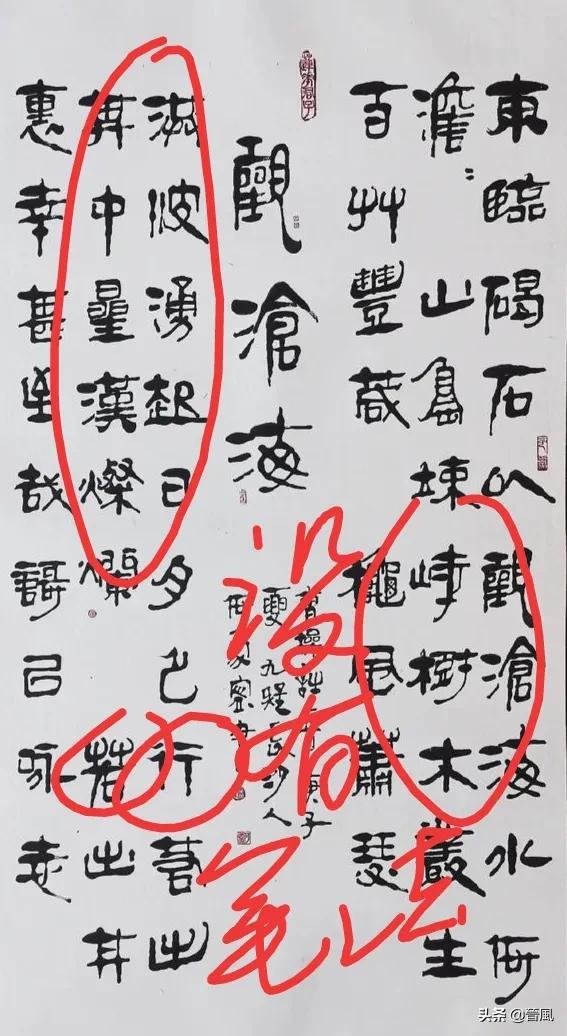 東臨碣石以觀滄海水何
澹〻山島竦峙樹木叢生
百艸豐茂龝風蕭瑟
觀滄海
庚子
長沙人
洪波湧起日月之行若出
其中星漢燦爛若出其
裏幸甚至哉謌以詠志
没有
笔法
头条